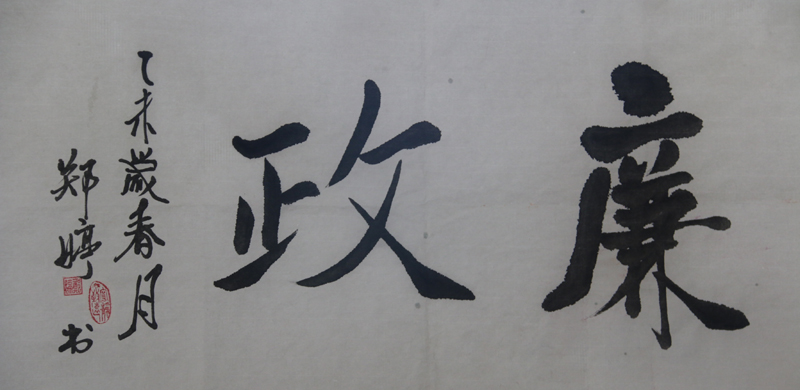 廉政
乙未歲春月
郑婷书